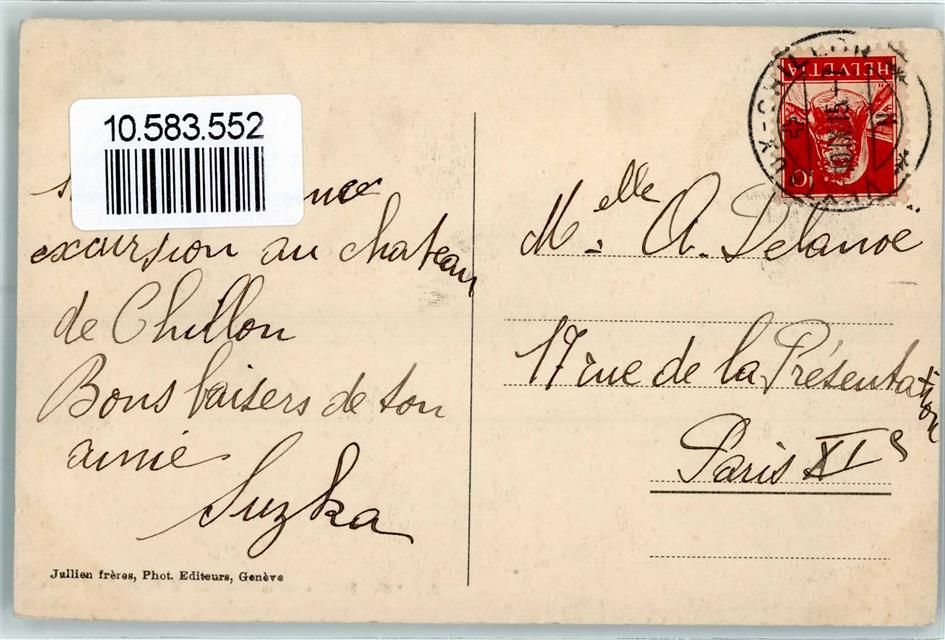 10.583.552
excursion au chateau
de Chillon
Bons baisers de ton
amie
Suzka
Jullien frères, Phot. Editeurs, Genève
HELVETIA
10
Melle A. Delanoë
17 rue de la Présentation
Paris XIe